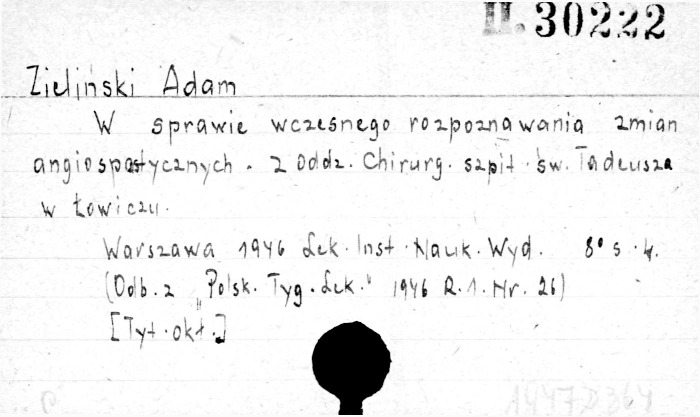 II. 30222
Zieliński Adam
W sprawie wczesnego rozpoznawania zmian
angiospastycznych. Z Oddz. Chirurg. szpit. św. Tadeusza
w Łowiczu.
Warszawa 1946 Lek. Inst. Nauk. Wyd. 8° s. 4.
(Odb. z „Polsk. Tyg. Lek." 1946 R. 1. Nr. 26)
[Tyt. okł.]
1947 D 364